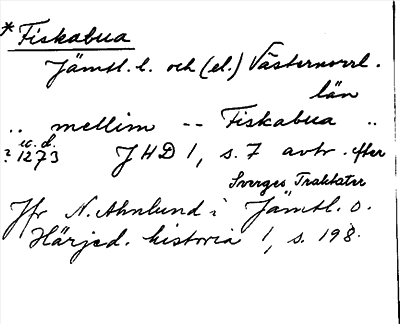 * Fiskabua
Jämtl. l. och (el.) Västernorrl.
län
.. mellim -- Fiskabua ..
u. d.
? 1273 JHD 1, s. 7 avtr. efter
Sverges Traktater
Jfr N. Ahnlund i Jämtl. o.
Härjed. historia 1, s. 198.